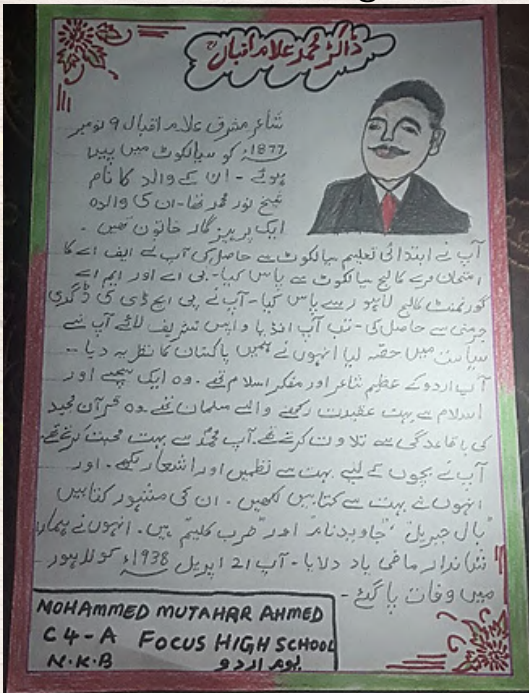 ڈاکٹر محمد علامہ اقبالؒ
شاعر مشرق علامہ اقبال 9 نومبر
1877ء کو سیالکوٹ میں پیدا
ہوئے - ان کے والد کا نام
شیخ نور محمد تھا - ان کی والدہ
ایک پرہیز گار خاتون تھیں -
آپ نے ابتدائی تعلیم سیالکوٹ سے حاصل کی آپ نے ایف اے کا
امتحان مرے کالج سیالکوٹ سے پاس کیا - بی اے اور ایم اے
گورنمنٹ کالج لاہور سے پاس کیا - آپ نے پی ایچ ڈی کی ڈگری
جرمنی سے حاصل کی - تب آپ انڈیا واپس تشریف لائے آپ نے
سیاست میں حصہ لیا انہوں نے ہمیں پاکستان کا نظریہ دیا --
آپ اردو کے عظیم شاعر اور مفکر اسلام تھے . وہ ایک سچے اور
اسلام سے بہت عقیدت رکھنے والے مسلمان تھے وہ قرآن مجید
کی باقاعدگی سے تلاوت کرتے تھے . آپ محمدؐ سے بہت محبت کرتے تھے .
آپ نے بچوں کے لیے بہت سے نظمیں اور اشعار لکھے . اور
انہوں نے بہت سے کتابیں لکھیں . ان کی مشہور کتابیں
"بال جبریل" "جاویدنامہ اور "ضرب کلیم" ہیں . انہوں نے ہمارا
شاندار ماضی یاد دلایا - آپ 21 اپریل 1938ء کو لاہور
میں وفات پا گئے -
MOHAMMED MUTAHAR AHMED
C4-A FOCUS HIGH SCHOOL
N.K.B یوم اردو